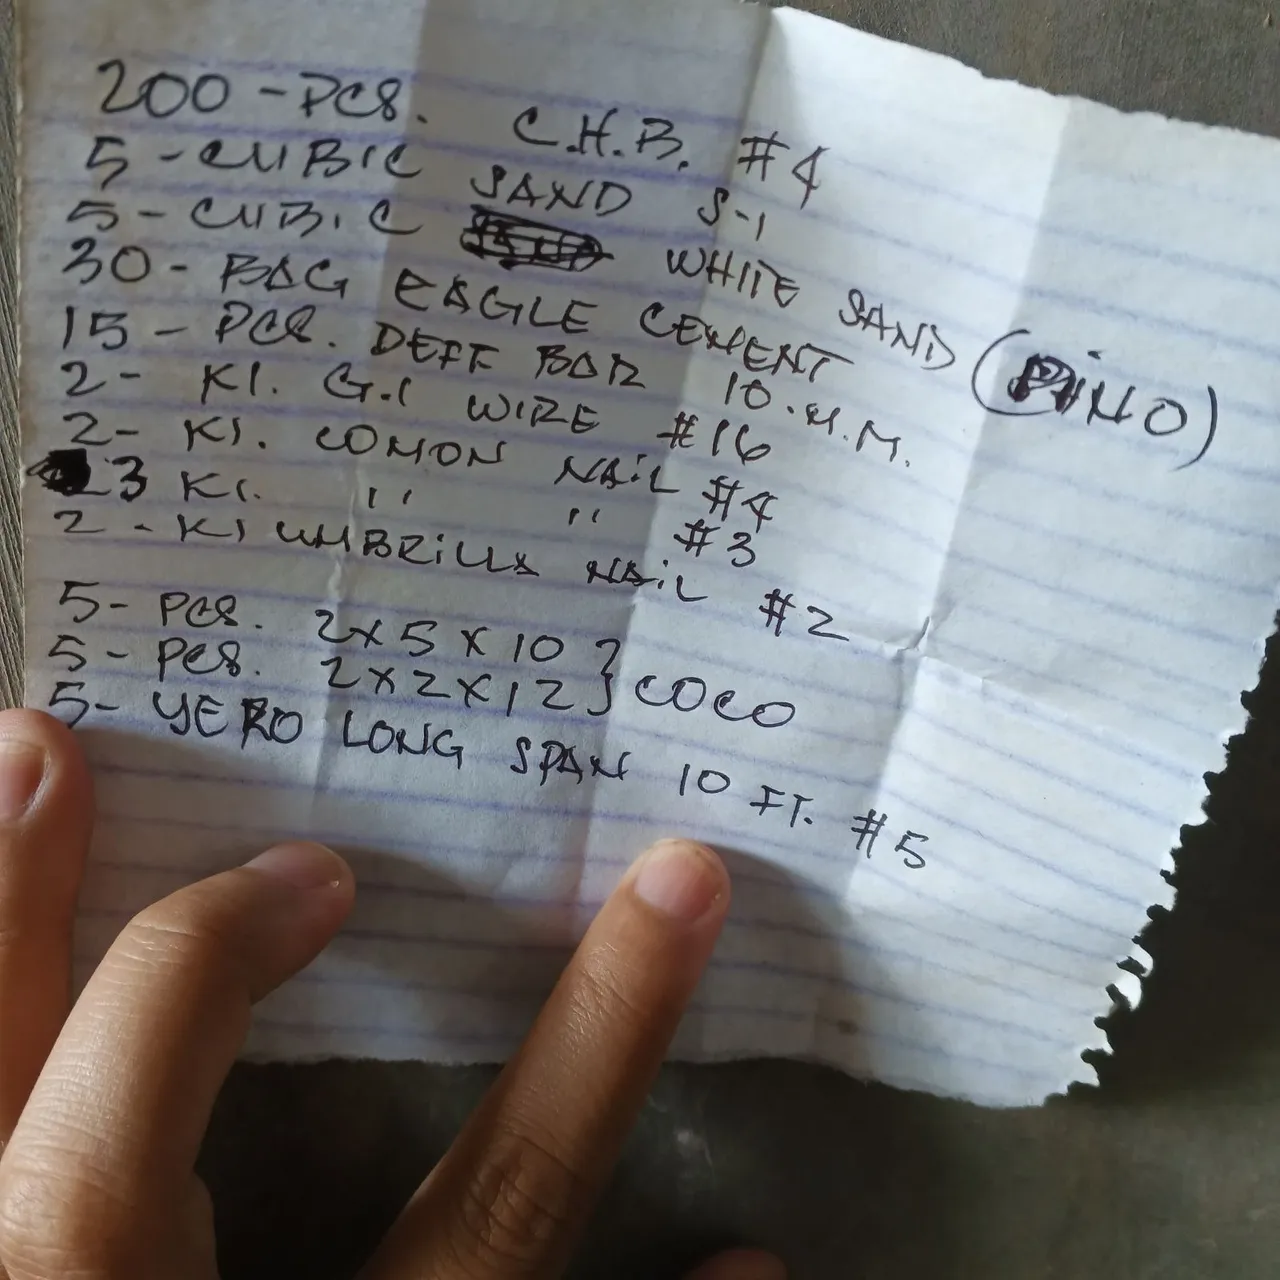 200 - PCS. C.H.B. #4
5 - CUBIC SAND S-1
5 - CUBIC WHITE SAND (PINO)
30 - BAG EAGLE CEMENT
15 - PCS. DEFF BAR 10.M.M.
2 - KI. G.I WIRE #16
2 - KI. COMON NAiL #4
3 KI. '' '' #3
2 - KI UMBRiLLA NAiL #2
5 - PCS. 2x5x10 } COCO
5 - PCS. 2x2x12
5 - YERO LONG SPAN 10 FT. #5